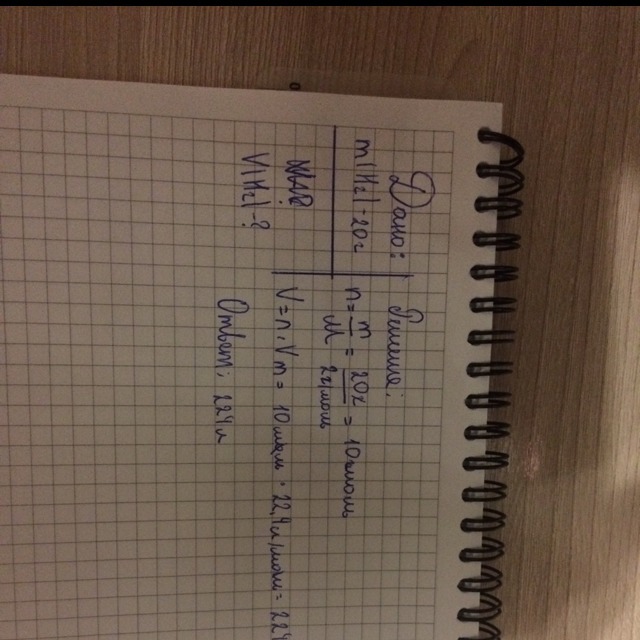 Дано:
m(H2)-20г
V(H2)-?
Решение:
n= m/M = 20г/2г/моль = 10моль
V=n·Vm= 10моль·22,4л/моль=224
Ответ: 224л